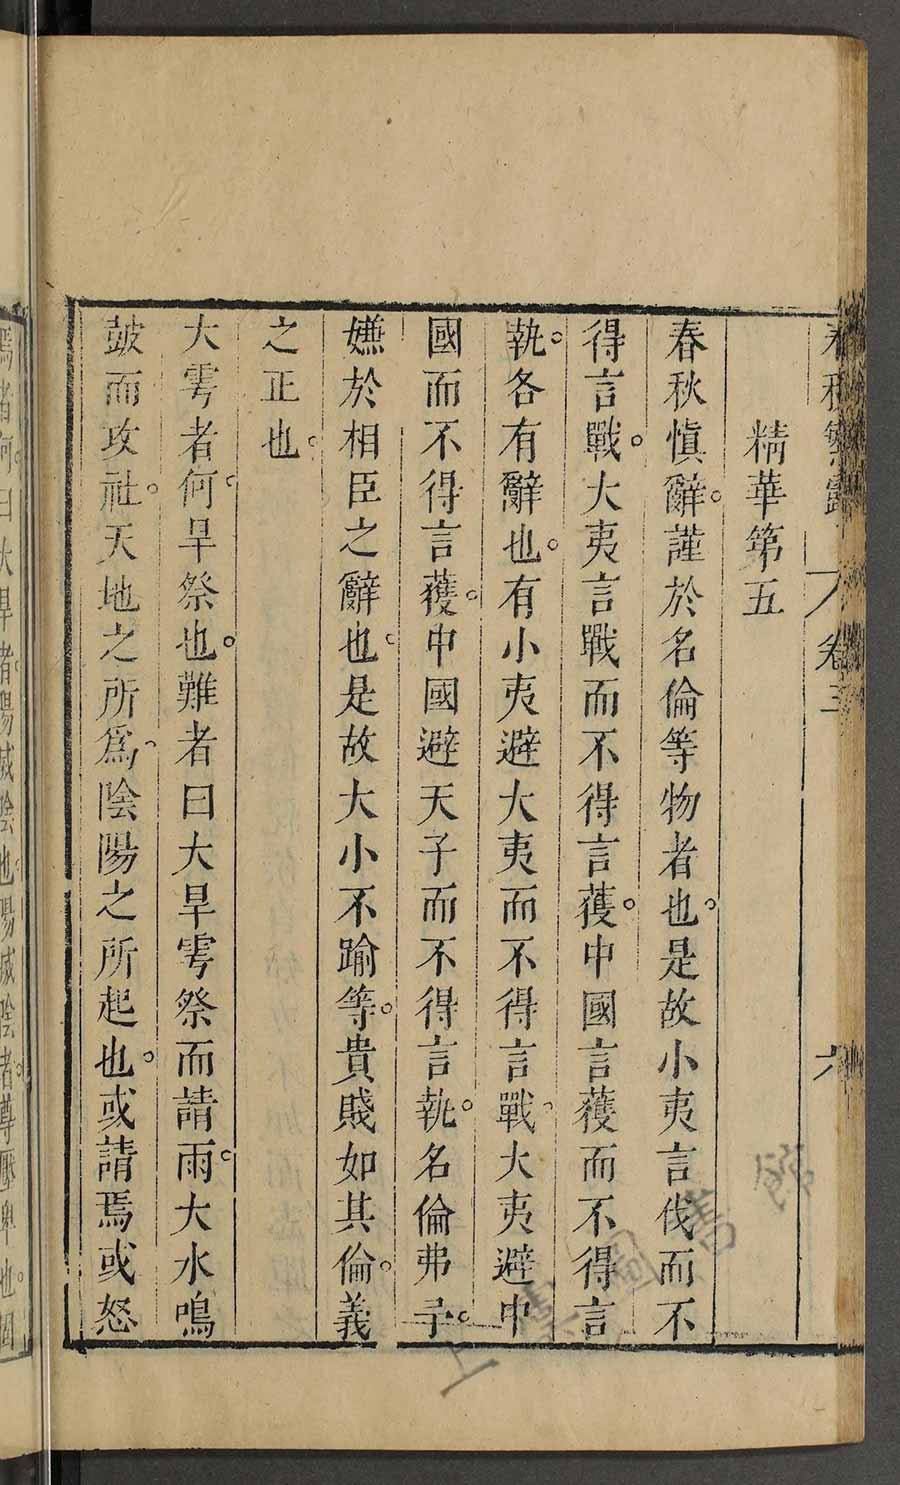 春秋繁露 卷三 六
精華第五
春秋慎辭。謹於名倫等物者也。是故小夷言伐而不
得言戰。大夷言戰而不得言獲。中國言獲而不得言
執。各有辭也。有小夷避大夷而不得言戰。大夷避中
國而不得言獲。中國避天子而不得言執。名倫弗予。
嫌於相臣之辭也。是故大小不踰等。貴賤如其倫。義
之正也。
大雩者何。旱祭也。難者曰大旱雩祭而請雨。大水鳴
鼓而攻社。天地之所爲。陰陽之所起也。或請焉或怒
焉者何。曰大旱者。陽滅陰也。陽滅陰者。尊壓卑也。固